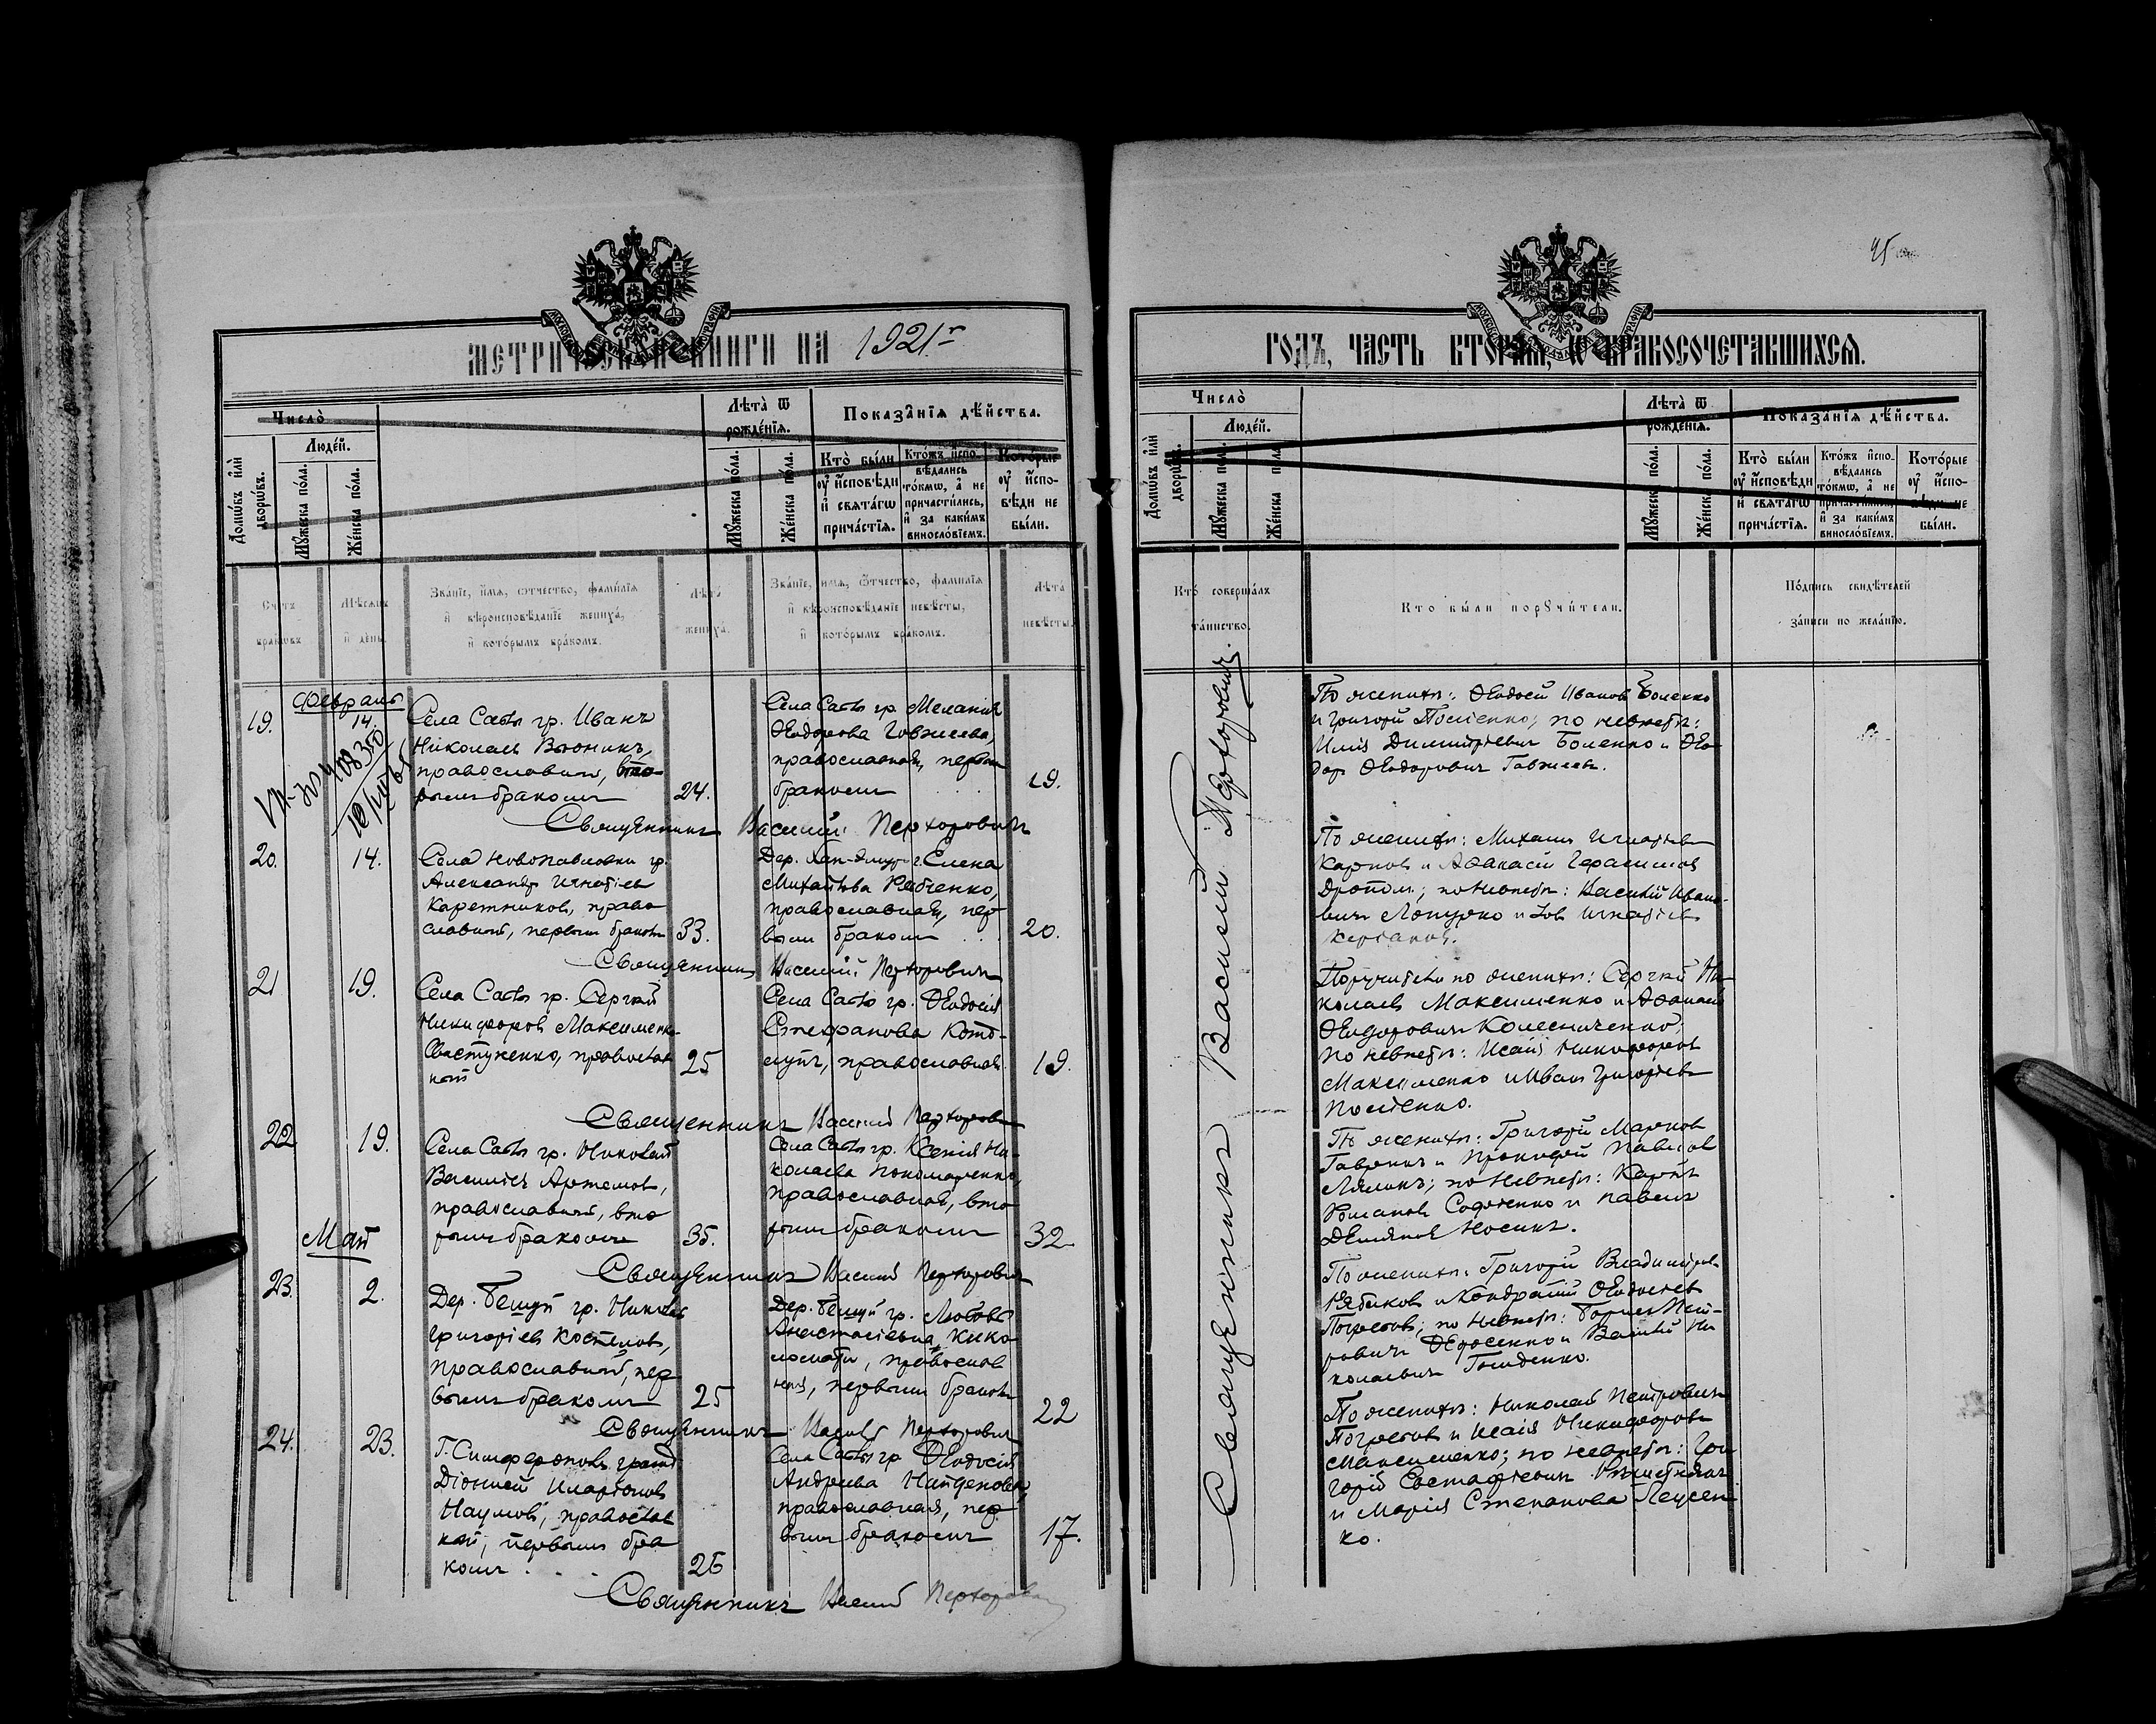 45
МЕТРИЧЕСКОЙ КНИГИ НА 1921 г
ГОДЪ, ЧАСТЬ ВТОРАЯ, О БРАКОСОЧЕТАВШИХСЯ.
Число̀
Домѡ́въ и҆лѝ дворѡ́въ.
Люде́й.
Мꙋ́жеска по́ла.
Же́нска по́ла.
Лѣ́та ѿ
рожде́нїѧ.
Мꙋ́жеска по́ла.
Же́нска по́ла.
Показа̑нїѧ дѣ́йства.
Кто̀ бы́ли
ᲂу҆ и҆сповѣ́ди
и҆ свѧта́гѡ
прича́стїѧ.
Кто́жъ и҆спо-
вѣ́дались
то́кмѡ, а҆ не
причасти́лись,
и҆ за каки́мъ
винословїемъ.
Кото́рые
ᲂу҆ и҆спо-
вѣ́ди не
бы́ли.
Счетъ
браковъ
Мѣсяцъ
и день.
Званіе, имя, отчество, фамилія
и вѣроисповѣданіе жениха,
и которымъ бракомъ.
Лѣта
жениха.
Званіе, имя, отчество, фамилія
и вѣроисповѣданіе невѣсты,
и которымъ бракомъ.
Лѣта
невѣсты.
Февраль
19.
14.
Села Саблы гр. Иванъ
Николаев Вьюникъ,
православный, вто-
рымъ бракомъ
24.
Села Саблы гр. Меланія
Ѳеодорова Говжеева,
православная, первым
бракомъ
19.
Священникъ Василій Перхоровичъ
20.
14.
Села Новопавловки гр.
Александр Игнатіев
Каретников, право
славный, первым браком
33.
Елена
Михайлова Рябченко,
православная, пер
вым браком
20.
Священникъ Василій Перхоровичъ
21
19.
Села Саблы гр. Сергѣй
Никифоров Максименко-
православ
ный
25
Села Саблы гр. Ѳеодосія
Стефанова
православная
19.
Священникъ Василій Перхорович
22
19.
Села Саблы гр. Николай
Васильев Артемов,
православный, вто
рымъ бракомъ
35.
Села Саблы гр. Ксенія Ни-
колаева Пономаренко,
православная, вто
рымъ бракомъ
32
Священникъ Василій Перхоровичъ
Май
23.
2.
Дер. Бешуй гр. Николай
Григоріев Костелов,
православный, пер
вымъ бракомъ
25
Дер. Бешуй гр. Любовь
Анастасіевна
православ
ная, первым браком
22
Священникъ Василій Перхорович
24.
23.
Г. Симферополь гражд
Діонисій Иларіонов
Наумов, православ
ный, первым бра
комъ
26
Села Саблы гр. Ѳеодосія
Андреева Найденова,
православная, пер
вым бракомъ
17.
Священникъ Василій Перхорович
Число̀
Домѡ́въ и҆лѝ дворѡ́въ.
Люде́й.
Мꙋ́жеска пола.
Же́нска пола.
Лѣ́та ѿ
рожде́нїѧ.
Мꙋ́жеска по́ла.
Же́нска по́ла.
Показа́нїѧ дѣ́йства.
Кто̀ бы́ли
ᲂу҆ и҆сповѣ́ди
и҆ свѧта́гѡ
прича́стїѧ.
Кто́жъ и҆спо-
вѣ́дались
то́кмѡ, а҆ не
причасти́лись,
и҆ за каки́мъ
винословїемъ.
Кото́рые
ᲂу҆ и҆спо-
вѣ́ди не
бы́ли.
Кто совершалъ
таинство.
Кто были поручители.
Подпись свидѣтелей
записи по желанію.
Священникъ Василій Перхоровичъ.
По женихѣ: Ѳеодосій Иванов Боленко
и Григорій Посіенко; по невѣстѣ:
Илія Димитріевич Боленко и Ѳео-
дор Ѳеодорович Говжеев.
По женихѣ: Михаил Игнатьев
Карпов и Аѳанасій Герасимов
по невѣстѣ: Василій Ивано-
вич и Игнатіев
Поручители по женихѣ: Сергѣй Ни-
колаев Максименко и Аѳанасій
Ѳеодорович Колесниченко;
по невѣстѣ: Исаія Никифоров
Максименко и Иван Григоріев
Посіенко.
По женихѣ: Григорій Марков
Гаврикъ и Прокофій Павлов
Лямикъ; по невѣстѣ: Карпъ
Романов Софіенко и Павелъ
Демянов Носикъ.
По женихѣ: Григорій Владимиров
Рябиков и Кондратій Ѳеодосіев
Погребов; по невѣстѣ: Борис Пет-
рович и Василій Ни
колаевич
По женихѣ: Николай Петрович
Погребов и Исаія Никифоров
Максименко; по невѣстѣ: Гри
горій Евстафіевич
и Марія Степанова
ко.